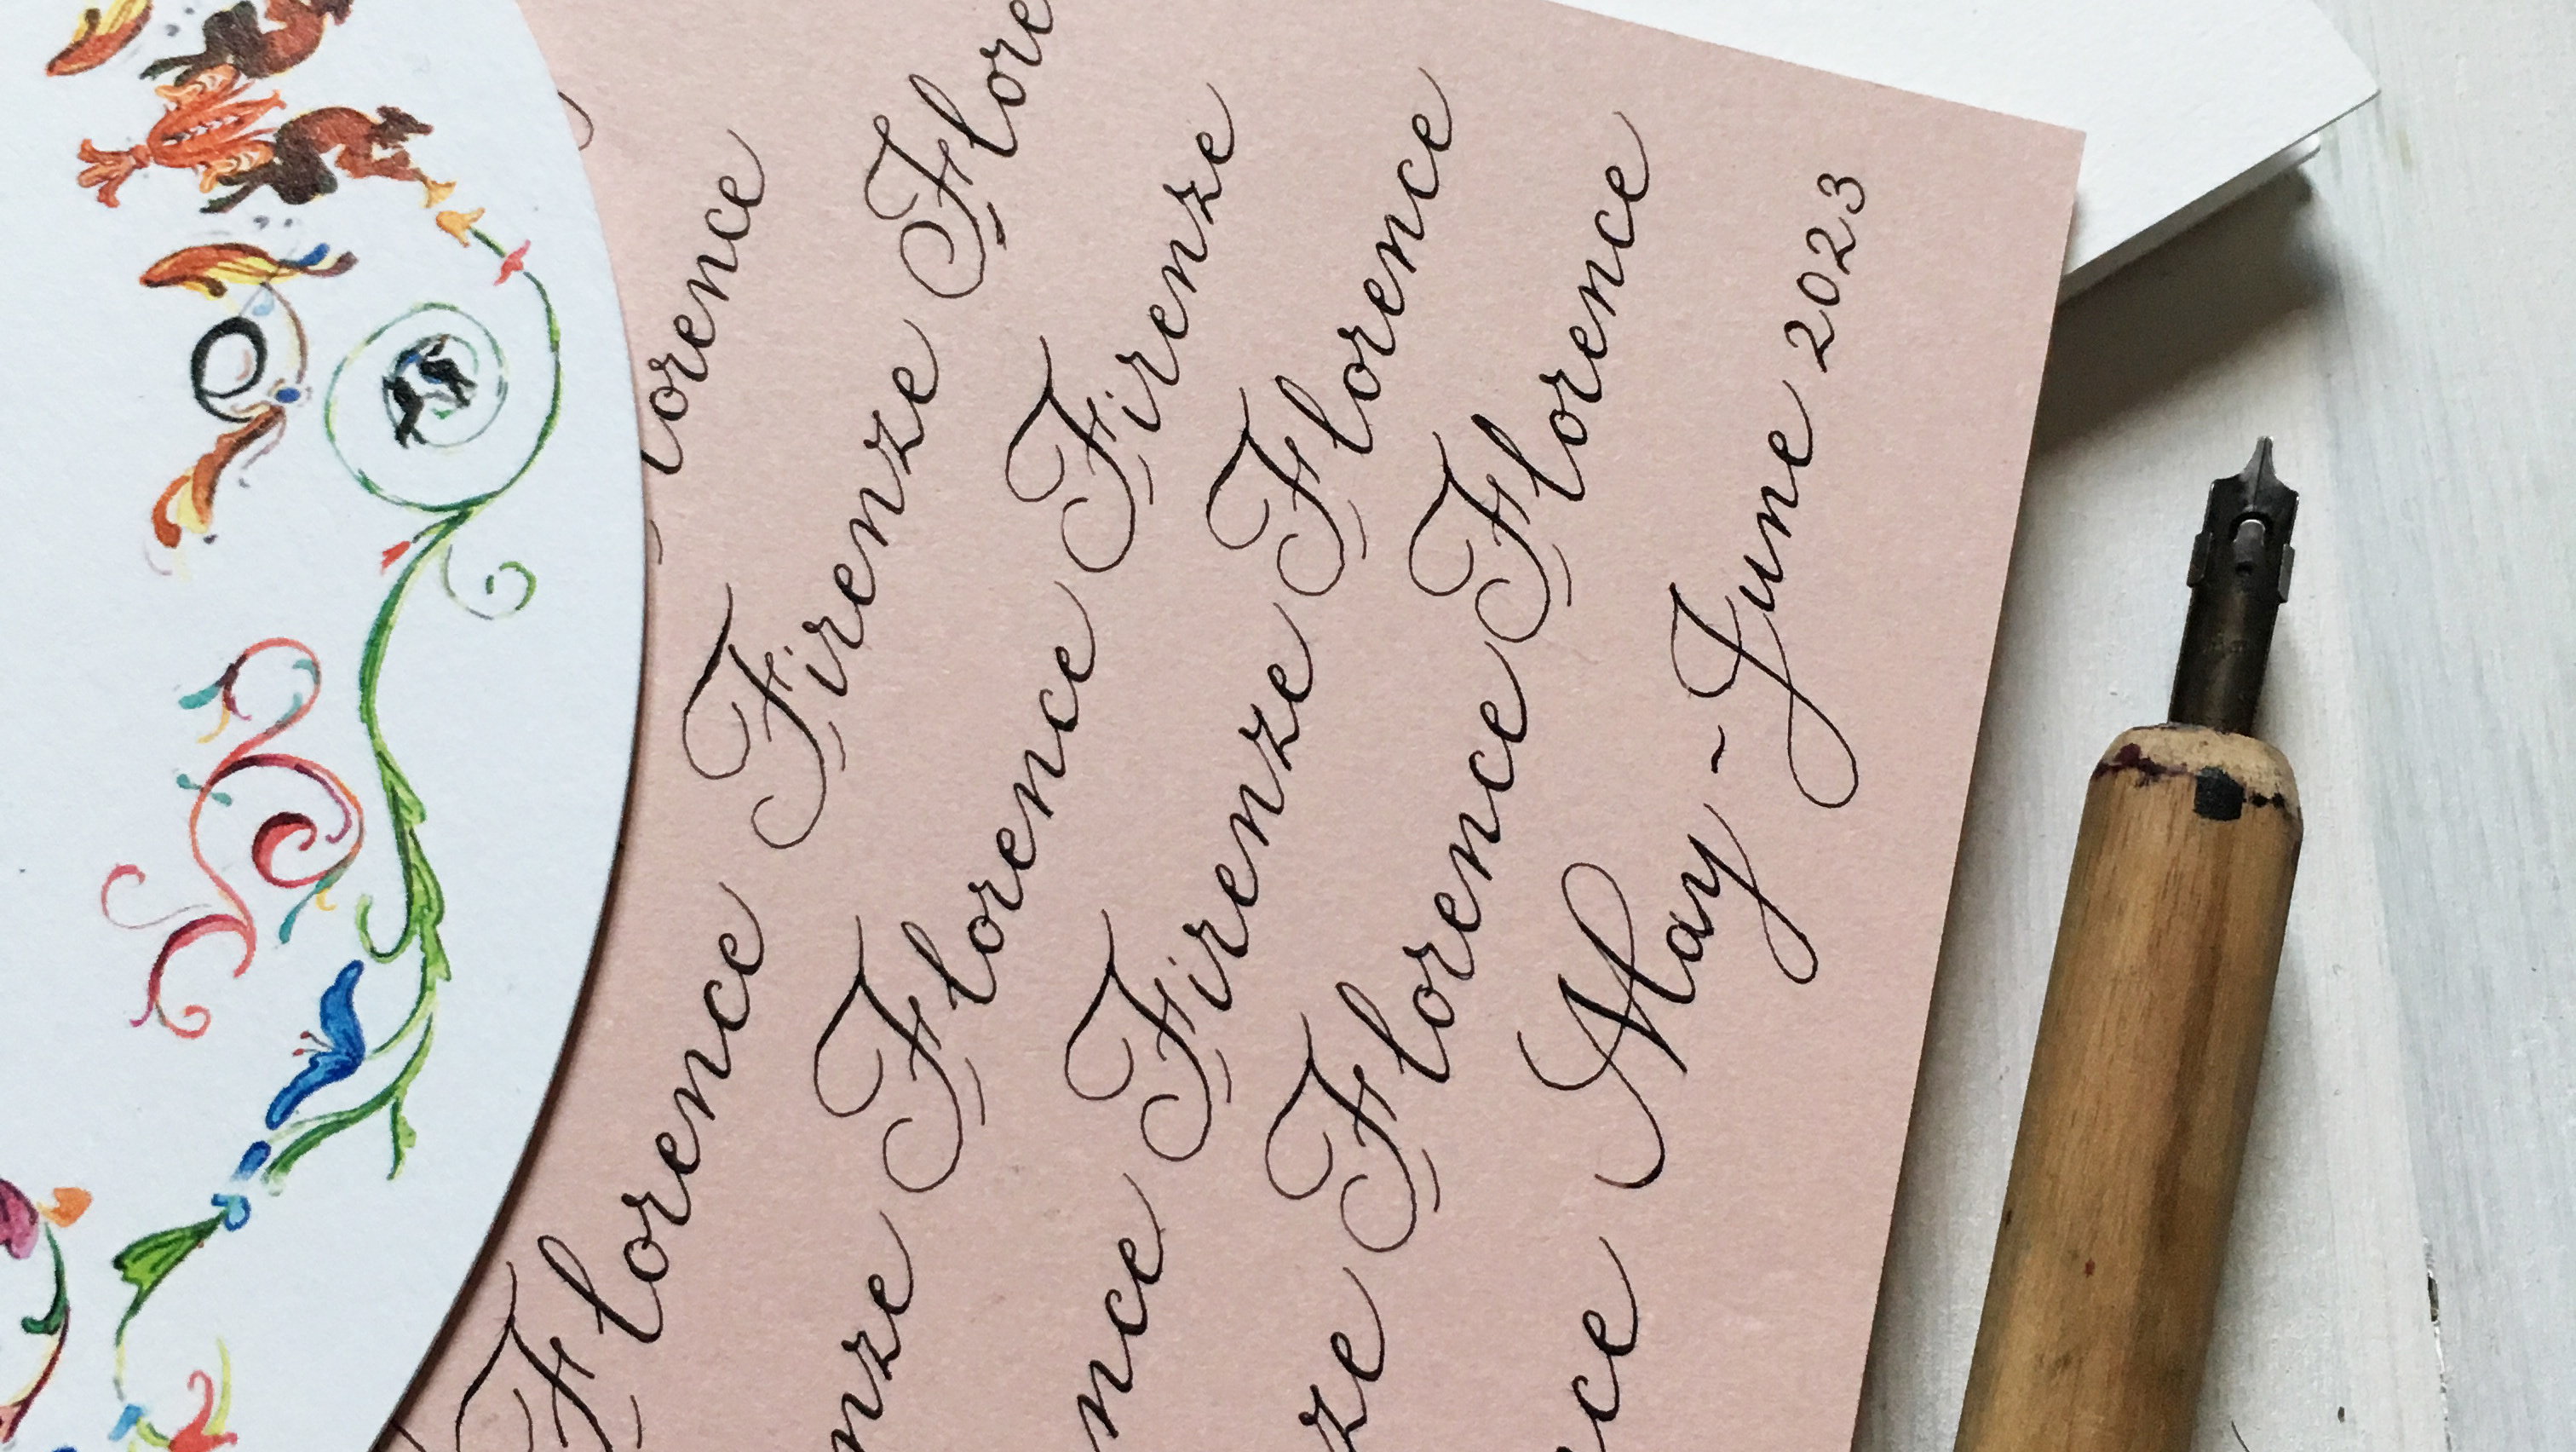 lorence
Florence Firenze Flore
nze Florence Firenze
nce Firenze Florence
ze Florence Florence
ce May ~ June 2023